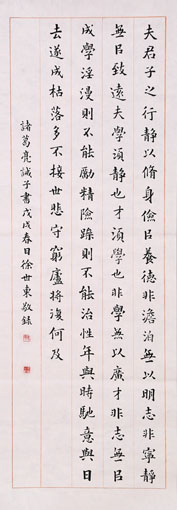 夫君子之行靜以脩身儉㠯養德非澹泊無以明志非寧靜
無㠯致遠夫學須靜也才須學也非學無以廣才非志無㠯
成學淫漫則不能勵精險躁則不能治性年與時馳意與日
去遂成枯落多不接世悲守窮廬將復何及
諸葛亮誡子書戊戌春日徐世東敬錄